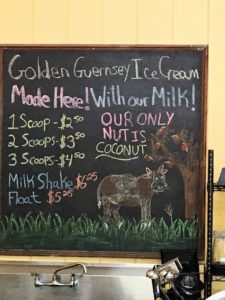 Golden Guernsey Ice Cream
Made Here! With our Milk!
1 Scoop - $2.50
2 Scoops - $3.50
3 Scoops - $4.50
OUR ONLY
NUT IS
COCONUT
Milk Shake $6.25
Float $5.25